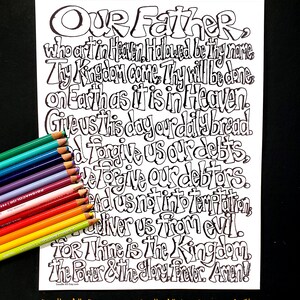 Our Father,
who art in Heaven, Hallowed be Thy name.
Thy Kingdom come, Thy will be done,
on Earth as it is in Heaven.
Give us this day our daily bread.
forgive us our debts,
forgive our debtors.
us not into temptation,
deliver us from evil.
For Thine is the Kingdom,
The Power & the Glory, Forever. Amen!